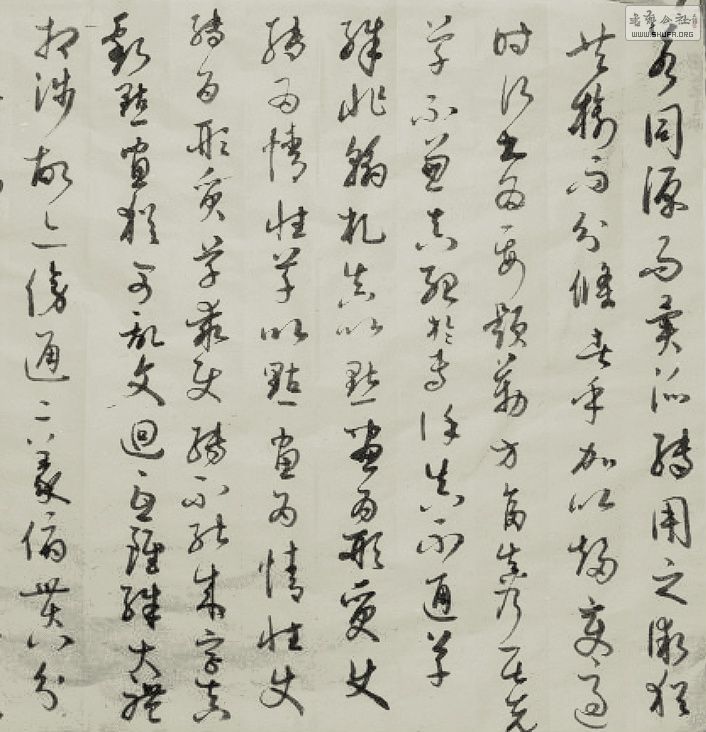 若同源而異派轉用之術猶
共樹而分條者乎加以趨變適
時行書為要題勒方畐真乃居先
草不兼真殆於專謹真不通草
殊非翰札真以點畫為形質使
轉為情性草以點畫為情性使
轉為形質草乖使轉不能成字真
虧點畫猶可記文迴互雖殊大體
相涉故亦傍通二篆俯貫八分
書藝公社
WWW.SHUFA.ORG